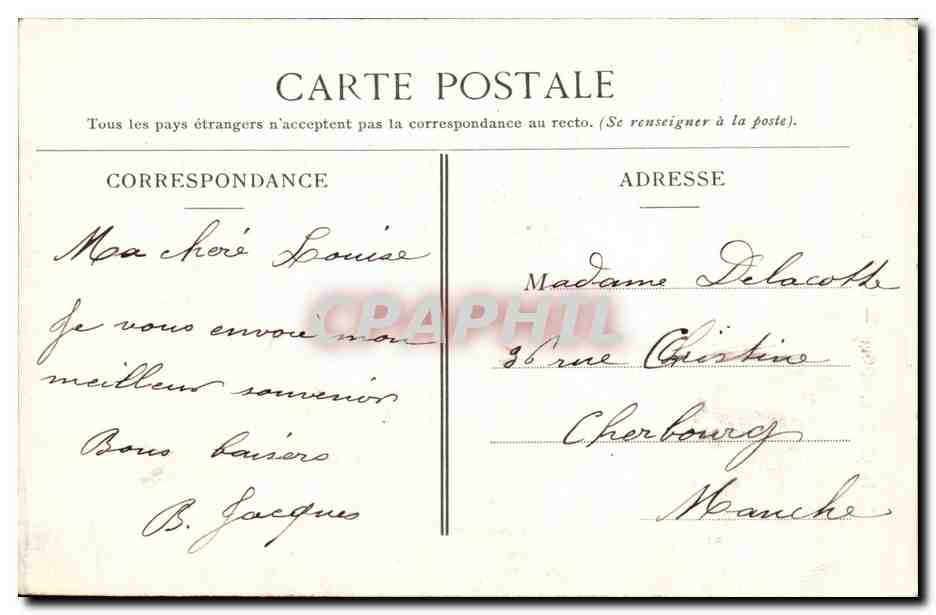 CARTE POSTALE
Tous les pays étrangers n'acceptent pas la correspondance au recto. (Se renseigner à la poste).
CORRESPONDANCE
Ma cheré Louise
Je vous envoie mon
meilleur souvenir
Bons baisers
B. Jacques
ADRESSE
Madame Delacotte
36 rue Christine
Cherbourg
Manche
CPAPHIL